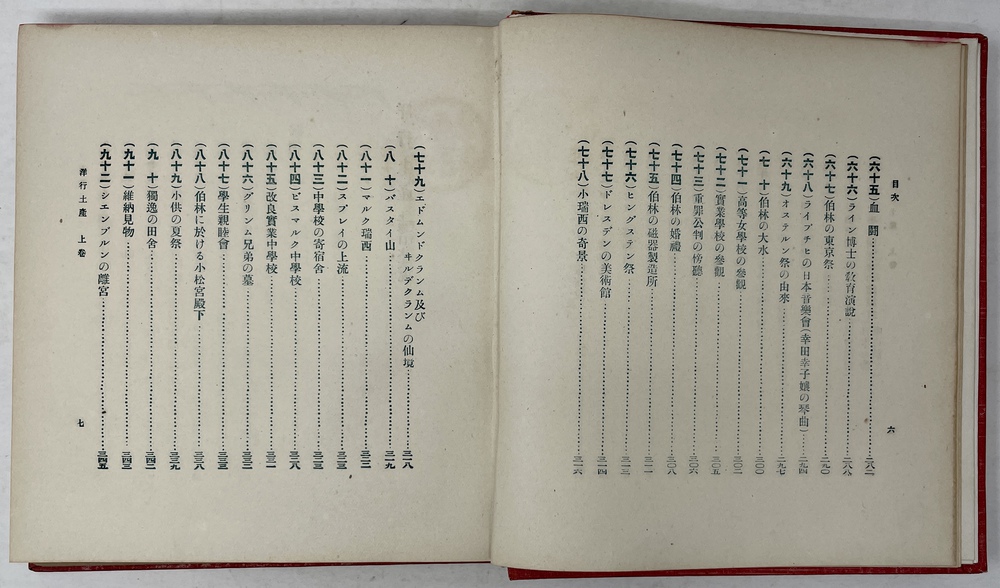 目次
六
(六十五)血鬪……二八二
(六十六)ライン博士の敎育演說……二八八
(六十七)伯林の東京祭……二九〇
(六十八)ライプチヒの日本音樂會(幸田幸子孃の琴曲)……二九四
(六十九)オステルン祭の由來……二九七
(七十)伯林の大水……三〇〇
(七十一)高等女學校の參觀……三〇二
(七十二)實業學校の參觀……三〇五
(七十三)重罪公判の傍聽……三〇六
(七十四)伯林の婚禮……三〇八
(七十五)伯林の磁器製造所……三一一
(七十六)ヒングステン祭……三一三
(七十七)ドレスデンの美術館……三一四
(七十八)小瑞西の奇景……三一六
(七十九)エドムンドクランム及び
ヰルデクランムの仙境……三一八
(八十)バスタイ山……三一九
(八十一)マルク瑞西……三二二
(八十二)スプレイの上流……三二三
(八十三)中學校の寄宿舍
(八十四)ビスマルク中學校……三二八
(八十五)改良實業中學校……三三一
(八十六)グリンム兄弟の墓……三三二
(八十七)學生親睦會……三三三
(八十八)伯林に於ける小松宮殿下……三三八
(八十九)小供の夏祭……三三九
(九十)獨逸の田舍……三四二
(九十一)維納見物……三四三
(九十二)シエンブルンの離宮……三四五
洋行土產 上卷
七